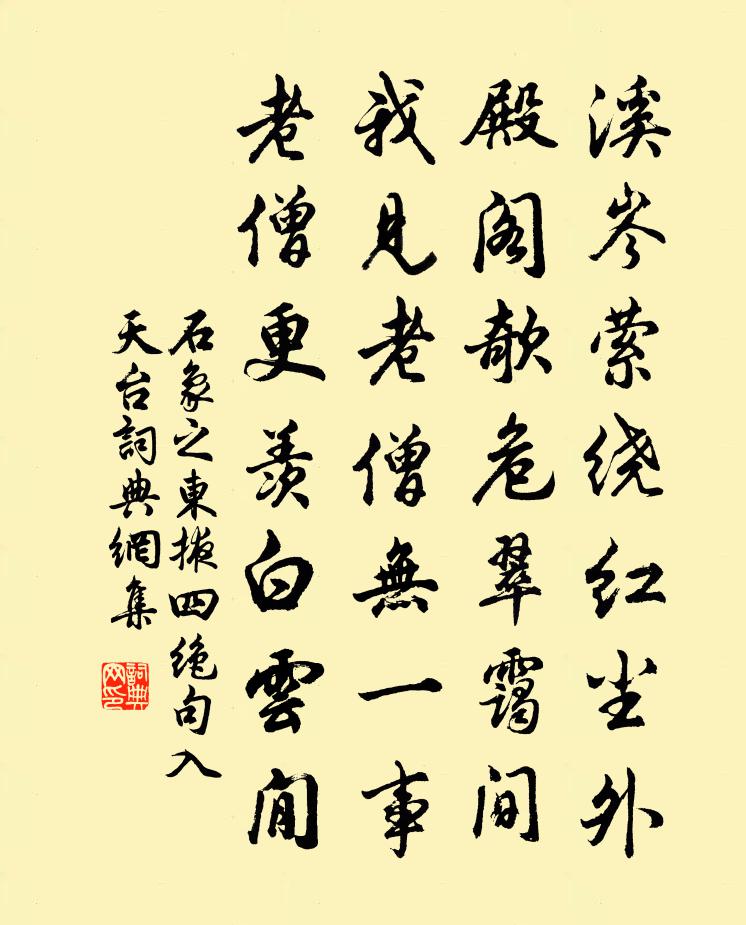 溪岑萦绕红尘外
殿阁欹危翠霭间
我見老僧無一事
老僧更羨白雲閒
石象之東掖四絶句入
天台詞典網集
詞典網印